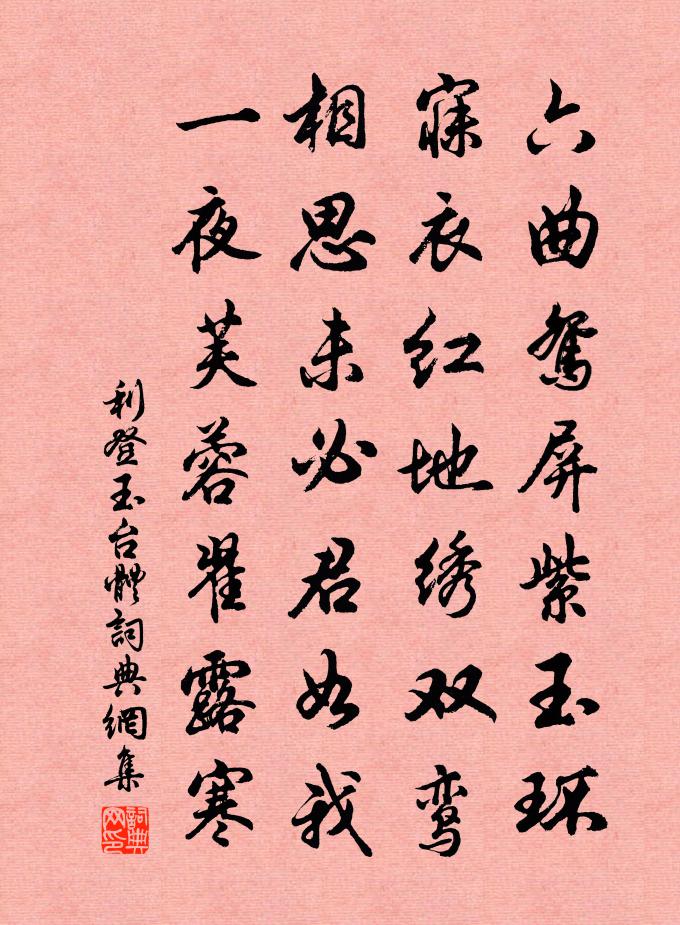 六曲鸳屏紫玉环
寐衣红地绣双鸾
相思未必君如我
一夜芙蓉露寒
利登玉台體詞典網集
詞典网印